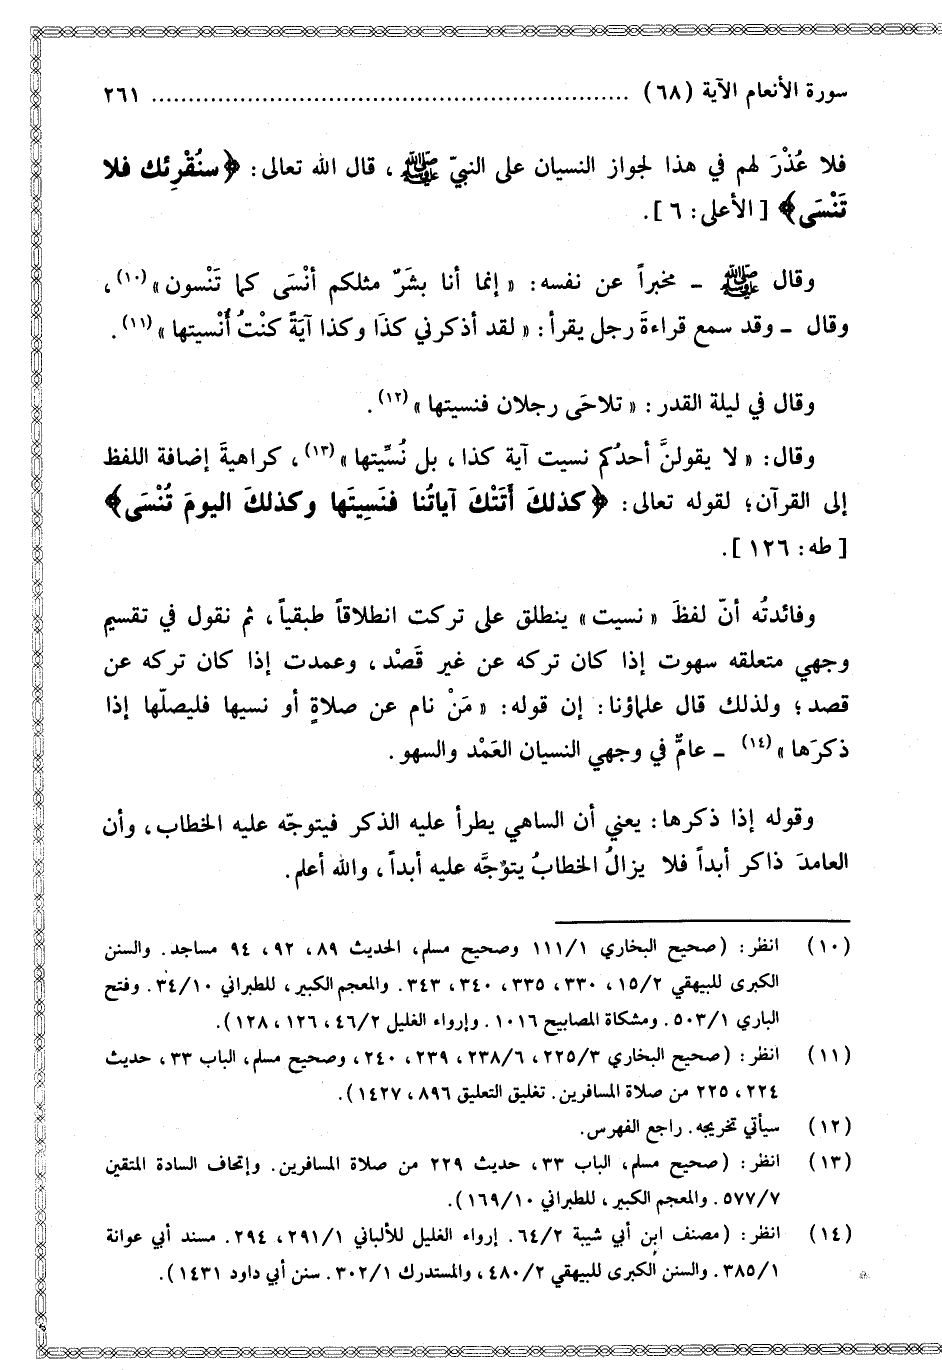 سورة الأنعام الآية (٦٨) ................................................................ ٢٦١
فلا عُذْرَ لهم في هذا لجواز النسيان على النبيّ ﷺ، قال الله تعالى: ﴿سنُقْرِئك فلا
تَنْسَى﴾ [الأعلى: ٦].
وقال ﷺ ـ مخبراً عن نفسه: «إنما أنا بشَرٌ مثلكم أنْسَى كما تَنْسون»(١٠)،
وقال ـ وقد سمع قراءةَ رجل يقرأ: «لقد أذكرني كذَا وكذا آيَةً كنْتُ أُنْسيتها»(١١).
وقال في ليلة القدر: «تلاحَى رجلان فنسيتها»(١٢).
وقال: «لا يقولنَّ أحدُكم نسيت آية كذا، بل نُسِّيتها»(١٣)، كراهيةَ إضافة اللفظ
إلى القرآن؛ لقوله تعالى: ﴿كذلكَ أَتَتْكَ آياتُنا فنَسِيتَها وكذلكَ اليومَ تُنْسَى﴾
[طه: ١٢٦].
وفائدتُه أنّ لفظَ «نسيت» ينطلق على تركت انطلاقاً طبقياً، ثم نقول في تقسيم
وجهي متعلقه سهوت إذا كان تركه عن غير قَصْد، وعمدت إذا كان تركه عن
قصد؛ ولذلك قال علماؤنا: إن قوله: «مَنْ نام عن صلاةٍ أو نسيها فليصلّها إذا
ذكرَها»(١٤) ـ عامٌّ في وجهي النسيان العَمْد والسهو.
وقوله إذا ذكرها: يعني أن الساهي يطرأ عليه الذكر فيتوجّه عليه الخطاب، وأن
العامدَ ذاكر أبداً فلا يزالُ الخطابُ يتوجَّه عليه أبداً، والله أعلم.
(١٠) انظر: (صحيح البخاري ١/١١١ وصحيح مسلم، الحديث ٨٩، ٩٢، ٩٤ مساجد. والسنن
الكبرى للبيهقي ١٥/٢، ٣٣٠، ٣٣٥، ٣٤٠، ٣٤٣. والمعجم الكبير، للطبراني ٣٤/١٠. وفتح
الباري ٥٠٣/١. ومشكاة المصابيح ١٠١٦. وإرواء الغليل ٤٦/٢، ١٢٦، ١٢٨).
(١١) انظر: (صحيح البخاري ٢٢٥/٣، ٢٣٨/٦، ٢٣٩، ٢٤٠، وصحيح مسلم، الباب ٣٣، حديث
٢٢٤، ٢٢٥ من صلاة المسافرين. تغليق التعليق ٨٩٦، ١٤٢٧).
(١٢) سيأتي تخريجه. راجع الفهرس.
(١٣) انظر: (صحيح مسلم، الباب ٣٣، حديث ٢٢٩ من صلاة المسافرين. وإتحاف السادة المتقين
٥٧٧/٧. والمعجم الكبير، للطبراني ١٦٩/١٠).
(١٤) انظر: (مصنف ابن أبي شيبة ٦٤/٢. إرواء الغليل للألباني ٢٩١/١، ٢٩٤. مسند أبي عوانة
٣٨٥/١. والسنن الكبرى للبيهقي ٤٨٠/٢، والمستدرك ٣٠٢/١. سنن أبي داود ١٤٣١).